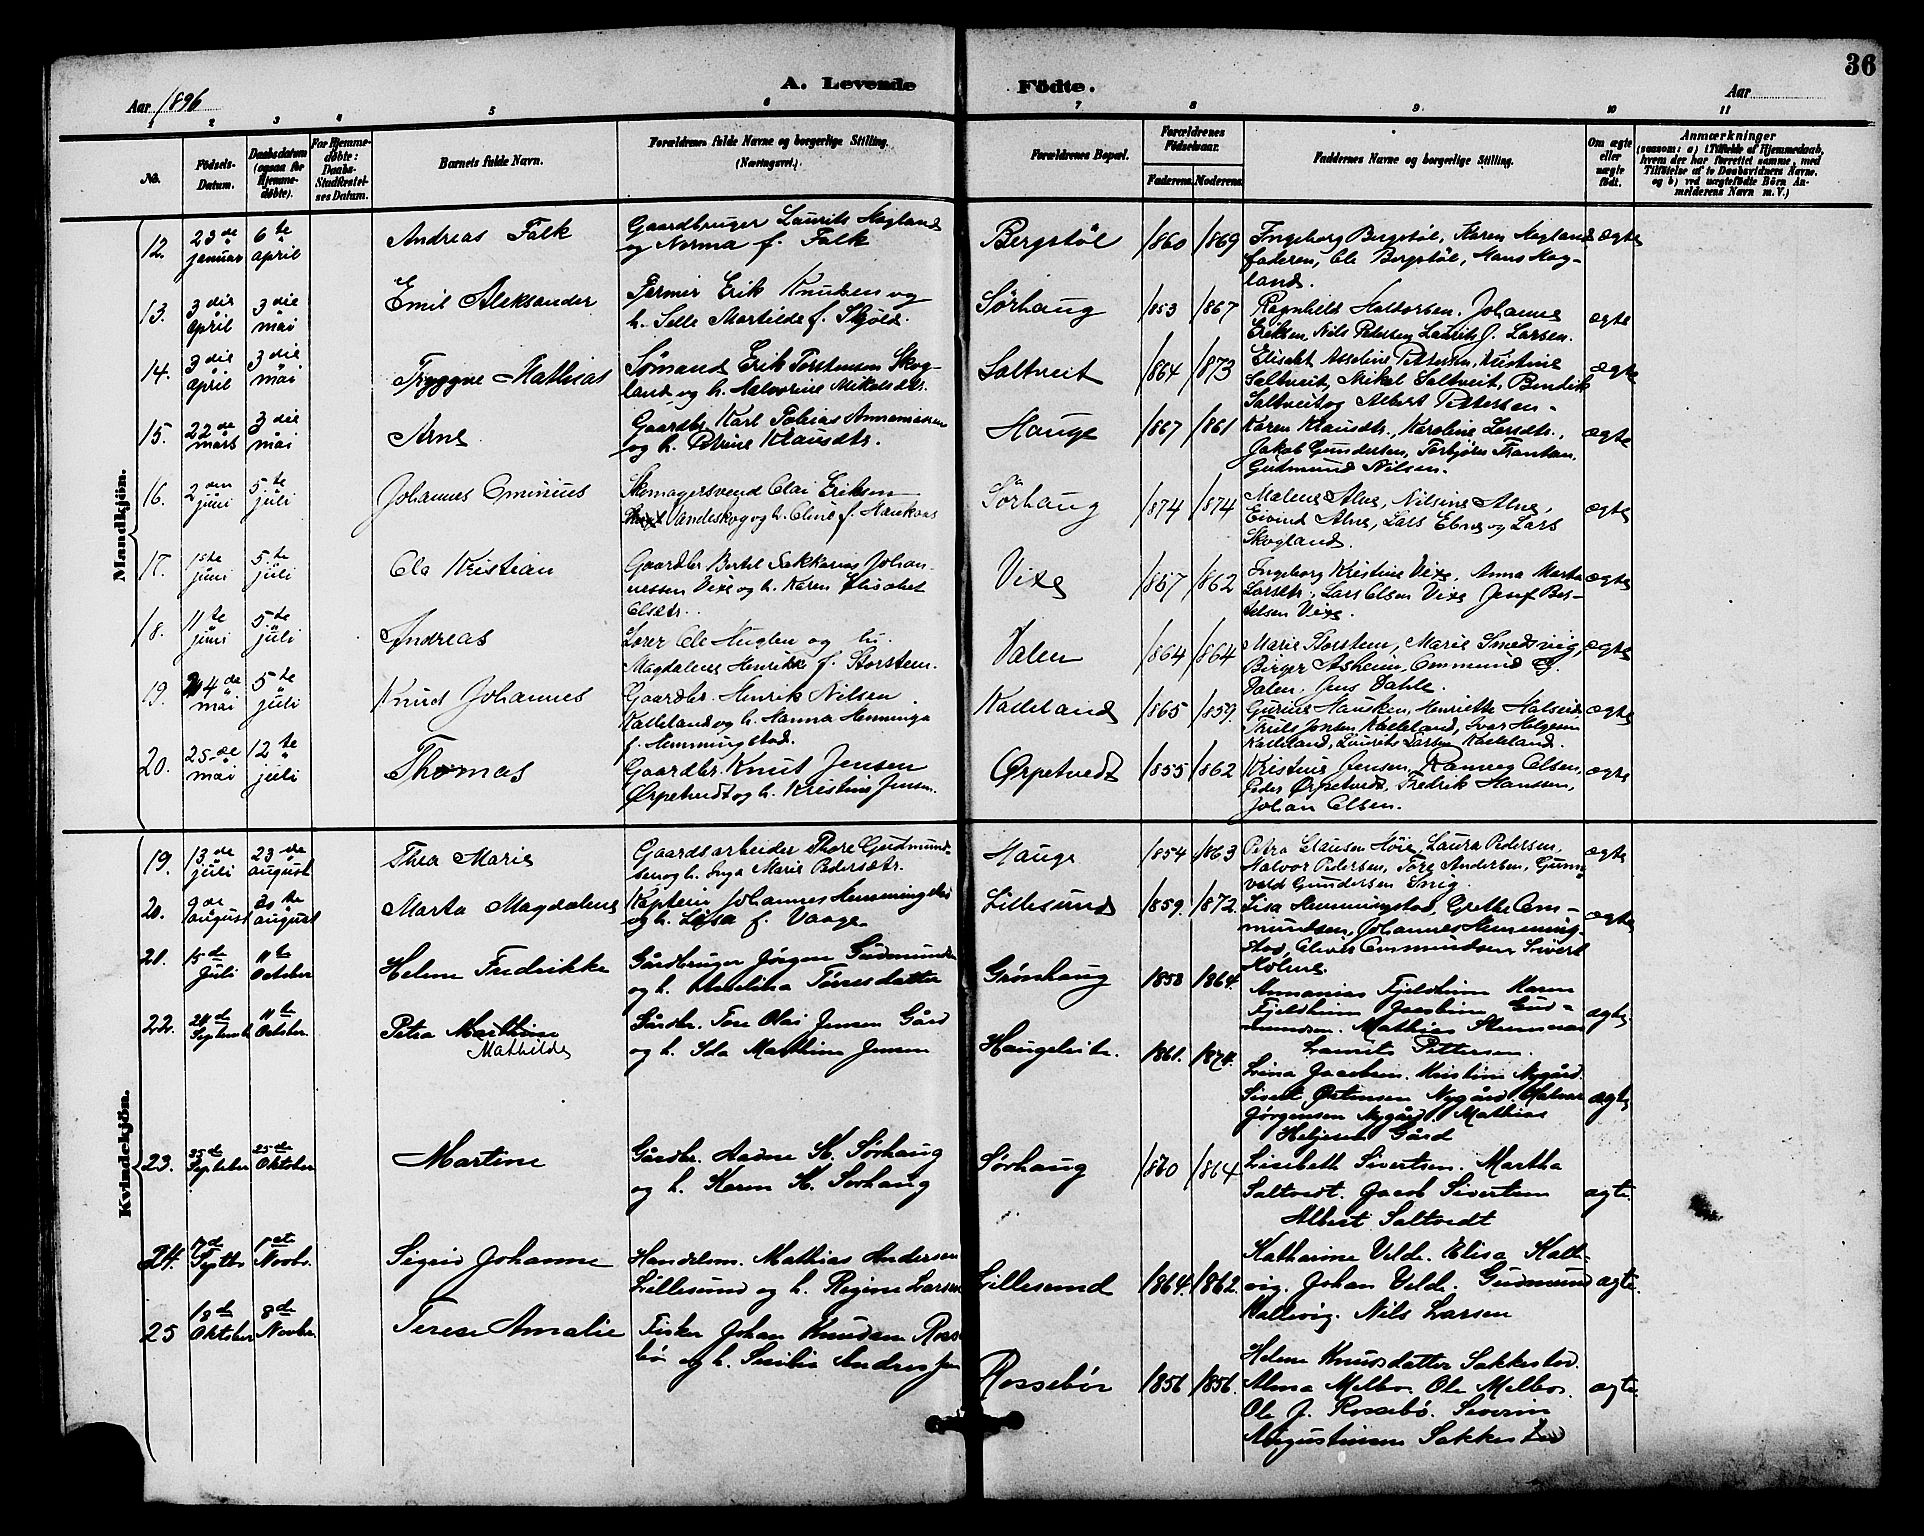 36
A. Levende Födte.
Aar 1896
Aar
1 2 3 4 5 6 7 8 9 10 11
No.
Födsels-
Datum.
Daabsdatum
(ogsaa for
Hjemme-
døbte).
For Hjemme-
døbte:
Daabs-
Stadfæstel-
ses Datum.
Barnets fulde Navn.
Forældrenes fulde Navne og borgerlige Stilling.
(Næringsvei.)
Forældrenes Bopæl.
Forældrenes
Födselsaar.
Faderens. Moderens.
Faddernes Navne og borgerlige Stilling.
Om ægte
eller
uægte
født.
Anmærkninger
(saasom: a) i Tilfælde af Hjemmedaab,
hvem der har forrettet samme, med
Tilføielse af to Daabsvidners Navne.
og b) ved uægtefødte Börn An-
melderens Navn m. V.)
Mandkjön.
12. 23de januar 6te april
Andreas Falk
Gaardbruger Laurits Hogland
og Norma f. Falk
Bergstøl 1860 1869
Ingeborg Bergstøl, Karen Hogland
faderen, Ole Bergstøl, Hans Hog-
land.
ægte
13. 3die april 3die mai
Emil Aleksander
Farmer Erik Knudsen og
h. Selle Martilde f. Skjold.
Sörhaug 1853 1867
Ragnhild Halvorsen, Johanne
Eriksen, Nils Petersen Laurits J. Larsen.
ægte
14. 3die april 3die mai
Tryggve Mathias
Sømand Erik Torstensen Skog-
land og h. Halvorine Mikalsdtr.
Saltveit 1864 1873
Elisabt Asseline Pettersen, Kristine
Saltveit, Mikal Saltveit, Bendik
Saltveit og Albert Pettersen -
ægte
15. 22de marts 3die mai
Arne
Gaardbr. Karl Tobias Annaniasen
og h. Petrine Klausdtr.
Hauge 1867 1861
Karen Klausdtr., Karoline Larsdtr.,
Jakob Gundersen, Torbjörn
Gudmund Nilsen.
ægte
16. 2den juni 5te juli
Johannes Ominius
Skomagersvend Olai Eriksen
Vandeskog og h. Oline f. Haukaas
Sörhaug 1874 1874
Malene Alne, Nilsine Alne,
Eivind Alne, Lars Ebne og Lars
Skogland.
ægte
17. 1ste juni 5te juli
Ole Kristian
Gaardbr Bertel Sakkarias Johan-
nessen Vixe og h. Karen Elisabet
Olsdtr.
Vixe 1857 1862
Ingeborg Kristine Vixe, Anna Marta
Larsdtr., Lars Olsen Vixe Josef Ber-
telsen Vixe.
ægte
18. 11te juni 5te juli
Andreas
Lærer Ole Huglen og hu.
Magdalene Henrikke f. Storstein.
Valen 1864 1864
Marie Storstein, Marie Smedsvig,
Birger Asheim, Ommund
Valen, Jens Dahle.
ægte
19. 4de mai 5te juli
Knud Johannes
Gaardbr. Henrik Nilsen
Kalleland og h. Hanna Henninga
f. Hemmingstad.
Kalleland 1865 1859
Gurine Hausken, Henriette Halseid,
Truls Jonsen Kalleland, Iver Helgesen
Kalleland, Laurits Larsen Kalleland.
ægte
20. 25de mai 12te juli
Thomas
Gaardbr. Knut Jensen
Ørpetvedt og h. Kristine Jensen.
Ørpetvedt 1855 1862
Kristine Jensen, Rameeg Olsen,
Peder Ørpetvedt, Fredrik Hansen,
Johan Olsen.
ægte
Kvindekjön.
19. 13de juli 23de august
Thea Marie
Gaardsarbeider Thore Gudmund-
sen og h. Inga Marie Pedersdtr.
Hauge 1854 1863
Petra Clausen Höie, Laura Pedersen,
Halvor Pedersen, Tore Andersen, Gunn-
vald Gundersen Snig.
ægte
20. 9de august 30te august
Marta Magdalene
Kaptein Johannes Hemmingstad
og h. Lisa f. Vaage
Lillesund 1859. 1872.
Lisa Hemmingstad, Grethe Om-
mundsen, Johannes Hemming-
stad, Oliver Ommundsen, Sivert
Holme.
ægte
21. 15de Juli 11te October
Helene Fredrikke
Gårdbruger Jørgen Gudmundsen
og h. Amelina Tørresdatter
Grønhaug 1858 1864.
Annanias Fjeldheim Karen
Fjeldheim Jacobine Gud-
mundsen. Mathias
Laurits Pettersen.
ægte
22. September 11te October
Petra Marthine
Mathilde
Gårdbr. Tore Olai Jensen Gård
og h. Ida Marthine Jensen
1861. 1874.
Lina Jacobsen. Kristine Nygård.
Sivert Østensen Nygård Halvor
Jørgensen Nygård. Mathias
Heljesen Gård
ægte
23. 25de September 25de Oktober
Martine
Gårdbr. Aadne K. Sørhaug
og h. Karen K. Sørhaug
Sørhaug 1860 1864
Lisebeth Sivertsen. Martha
Saltvedt. Jacob Sivertsen
Albert Saltvedt
ægte.
24. 7de Septbr 1ste Novbr.
Sigrid Johanne
Handelsm. Mathias Andersen
Lillesund og h. Regine Larsen
Lillesund 1864. 1862.
Katharine Velde. Elisa Kall-
vig. Johan Velde. Gudmund
Kallevig. Nils Larsen
ægte.
25 18de Oktober 8de Novbr.
Terese Amalie
Fisker Johan Knudsen Ros-
bø og h. Secilia Andreasen
Rossebø 1856 1856.
Helene Knudsdatter Sakkestad.
Alma Melbor Ole Melbor.
Ole J. Rossebø. Severin
Augustinsen Sakkestad
ægte.